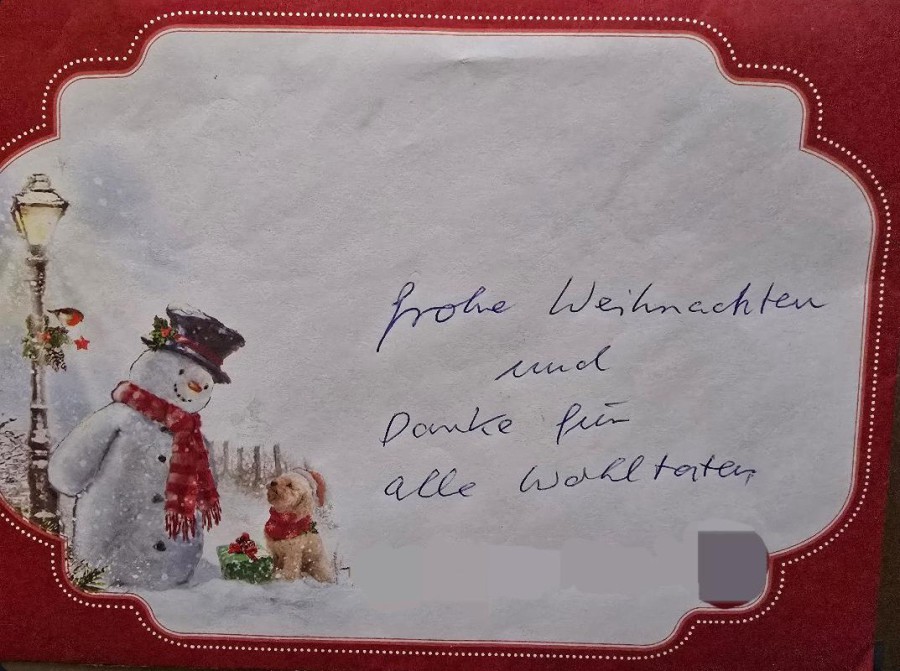 frohe Weihnachten
und
Danke für
alle Wohltaten